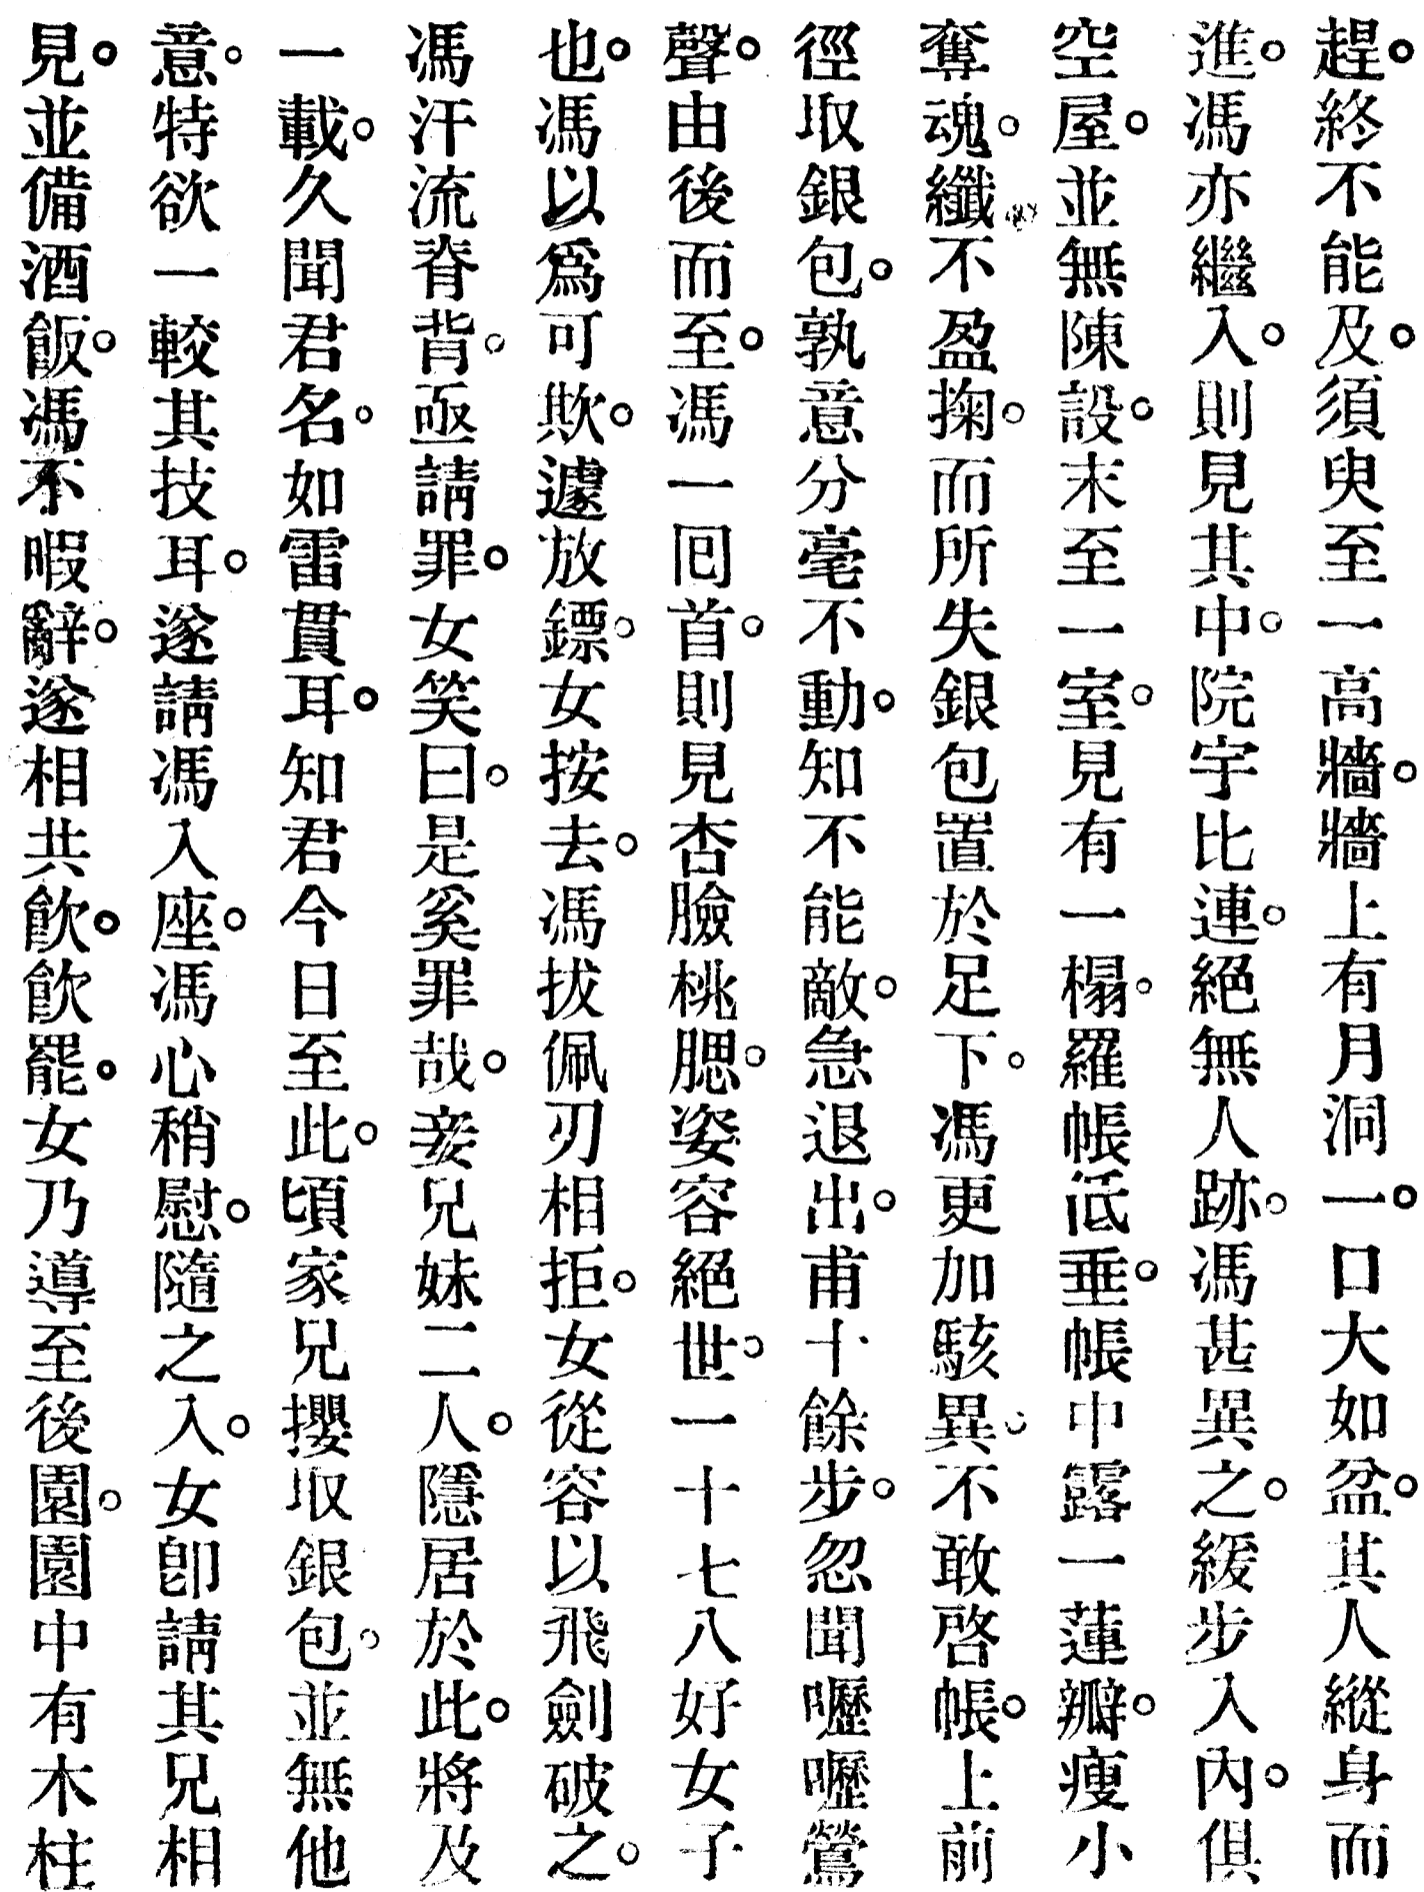 趕。終不能及。須臾至一高牆。牆上有月洞一。口大如盆。其人縱身而
進。馮亦繼入。則見其中。院宇比連。絕無人跡。馮甚異之。緩步入內。俱
空屋。並無陳設。末至一室。見有一榻。羅帳低垂。帳中露一蓮瓣。瘦小
奪魂。纖不盈掬。而所失銀包置於足下。馮更加駭異。不敢啓帳。上前
徑取銀包。孰意分毫不動。知不能敵。急退出。甫十餘步。忽聞嚦嚦鶯
聲。由後而至。馮一囘首。則見杏臉桃腮。姿容絕世。一十七八好女子
也。馮以爲可欺。遽放鏢。女按去。馮拔佩刃相拒。女從容以飛劍破之。
馮汗流脊背。亟請罪。女笑曰。是奚罪哉。妾兄妹二人。隱居於此。將及
一載。久聞君名。如雷貫耳。知君今日至此。頃家兄攖取銀包。並無他
意。特欲一較其技耳。遂請馮入座。馮心稍慰。隨之入。女卽請其兄相
見。並備酒飯。馮不暇辭。遂相共飲。飲罷。女乃導至後園。園中有木柱